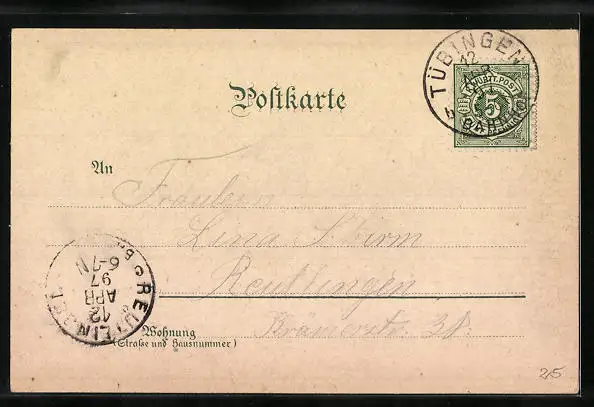 TÜBINGEN
12
APR
BAHNHOF
K. WÜRTT. POST
5
Postkarte
An
Fräulein
Lina Schirm
Reutlingen
REUTLINGEN
12
APR
97
6-7N
Wohnung
(Straße und Hausnummer)
Krämerstr. 38.
25